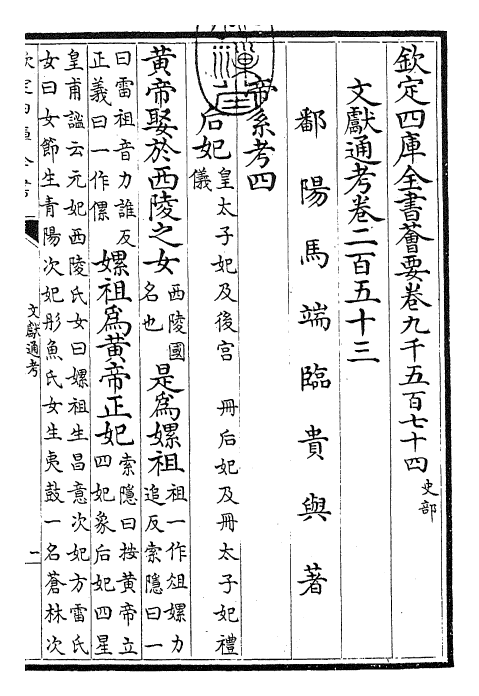 欽定四庫全書薈要卷九千五百七十四 史部
文獻通考卷二百五十三
鄱陽馬端臨貴與著
帝系考四
后妃 皇太子妃及後宫 冊后妃及冊太子妃禮
儀
黄帝娶於西陵之女 西陵國名也 是為嫘祖 祖一作俎嫘力追反索隱曰一
曰雷祖音力誰反正義曰一作傫 嫘祖為黄帝正妃 索隱曰按黄帝立四妃象后妃四星
皇甫謐云元妃西陵氏女曰嫘祖生昌意次妃方雷氏
女曰女節生青陽次妃彤魚氏女生夷鼓一名蒼林次
欽定四庫全書
文獻通考
一